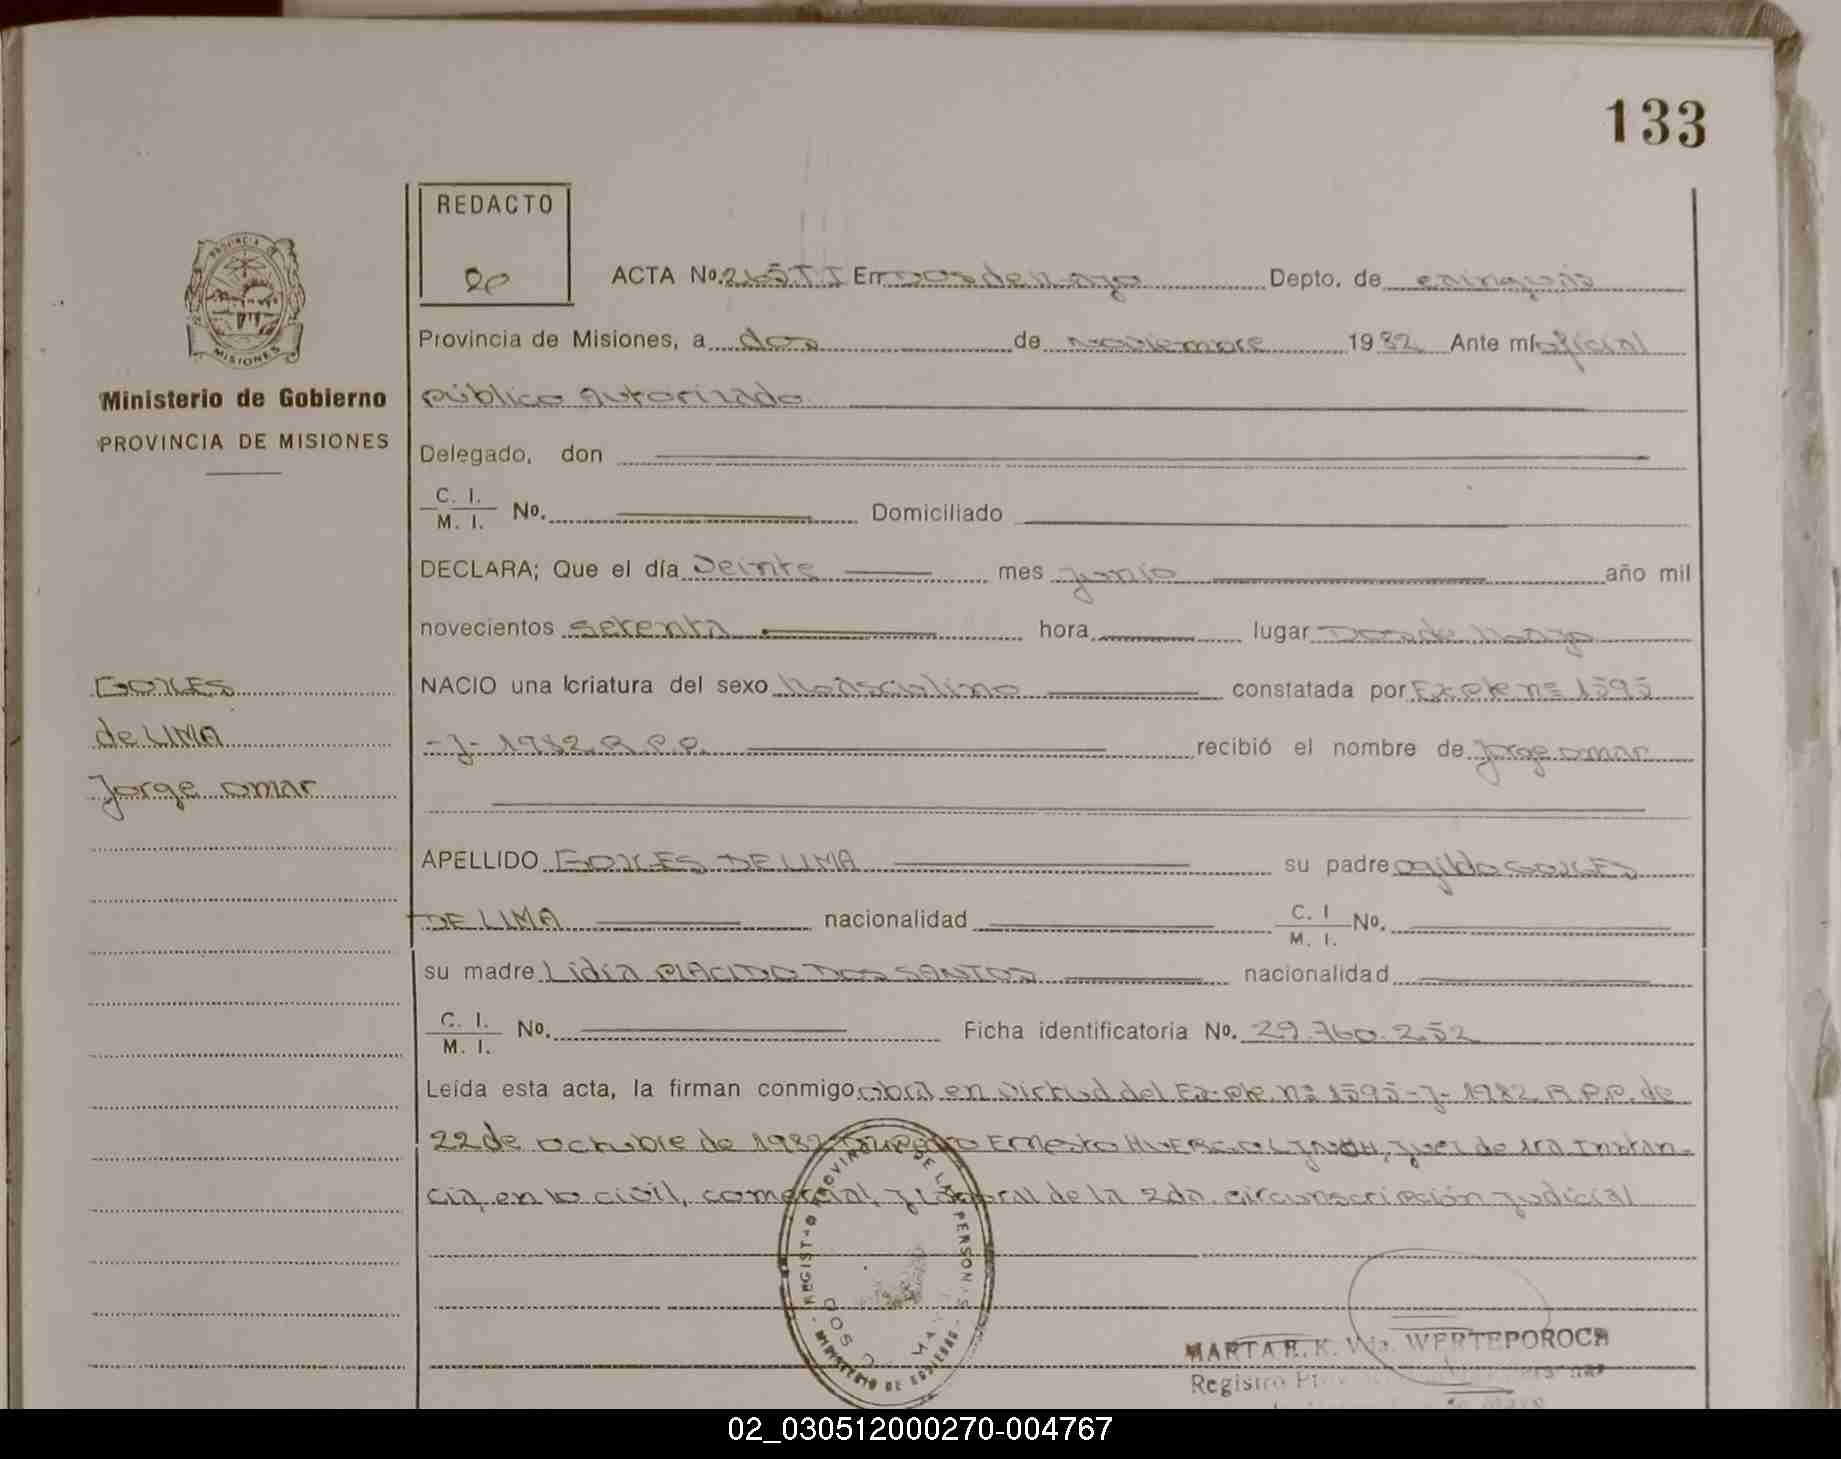 133
REDACTO
ACTA No. 265 T.I En Dos de Mayo Depto. de cainguás
Provincia de Misiones, a dos de noviembre 1982 Ante mí oficial
Ministerio de Gobierno
público autorizado
PROVINCIA DE MISIONES
Delegado, don
C. I.
M. I. No. Domiciliado
DECLARA; Que el día veinte mes junio año mil
novecientos setenta hora lugar Dos de Mayo
GOMES
NACIO una criatura del sexo Masculino constatada por Expte nº 1595
de LIMA
-J- 1982 R.P.P. recibió el nombre de Jorge omar
Jorge omar
APELLIDO GOMES DE LIMA su padre Ogildo GOMES
DE LIMA nacionalidad C. I
M. I. No.
su madre Lidia PLACIDO DOS SANTOS nacionalidad
C. I.
M. I. No. Ficha identificatoria No. 29.760.252
Leída esta acta, la firman conmigo obra en virtud del Expte. nº 1595-J-1982 R.P.P. de
22 de octubre de 1982 Pedro Ernesto HUERGO LYNCH, Juez de 1ra Instan-
cia, en lo civil, comercial, y Laboral de la 2da. circunscripción judicial
REGISTRO PROVINCIAL DE LAS PERSONAS
DOS DE MAYO
MINISTERIO DE GOBIERNO
MARTA R. K. Vda. WERTEPOROCH
02_030512000270-004767